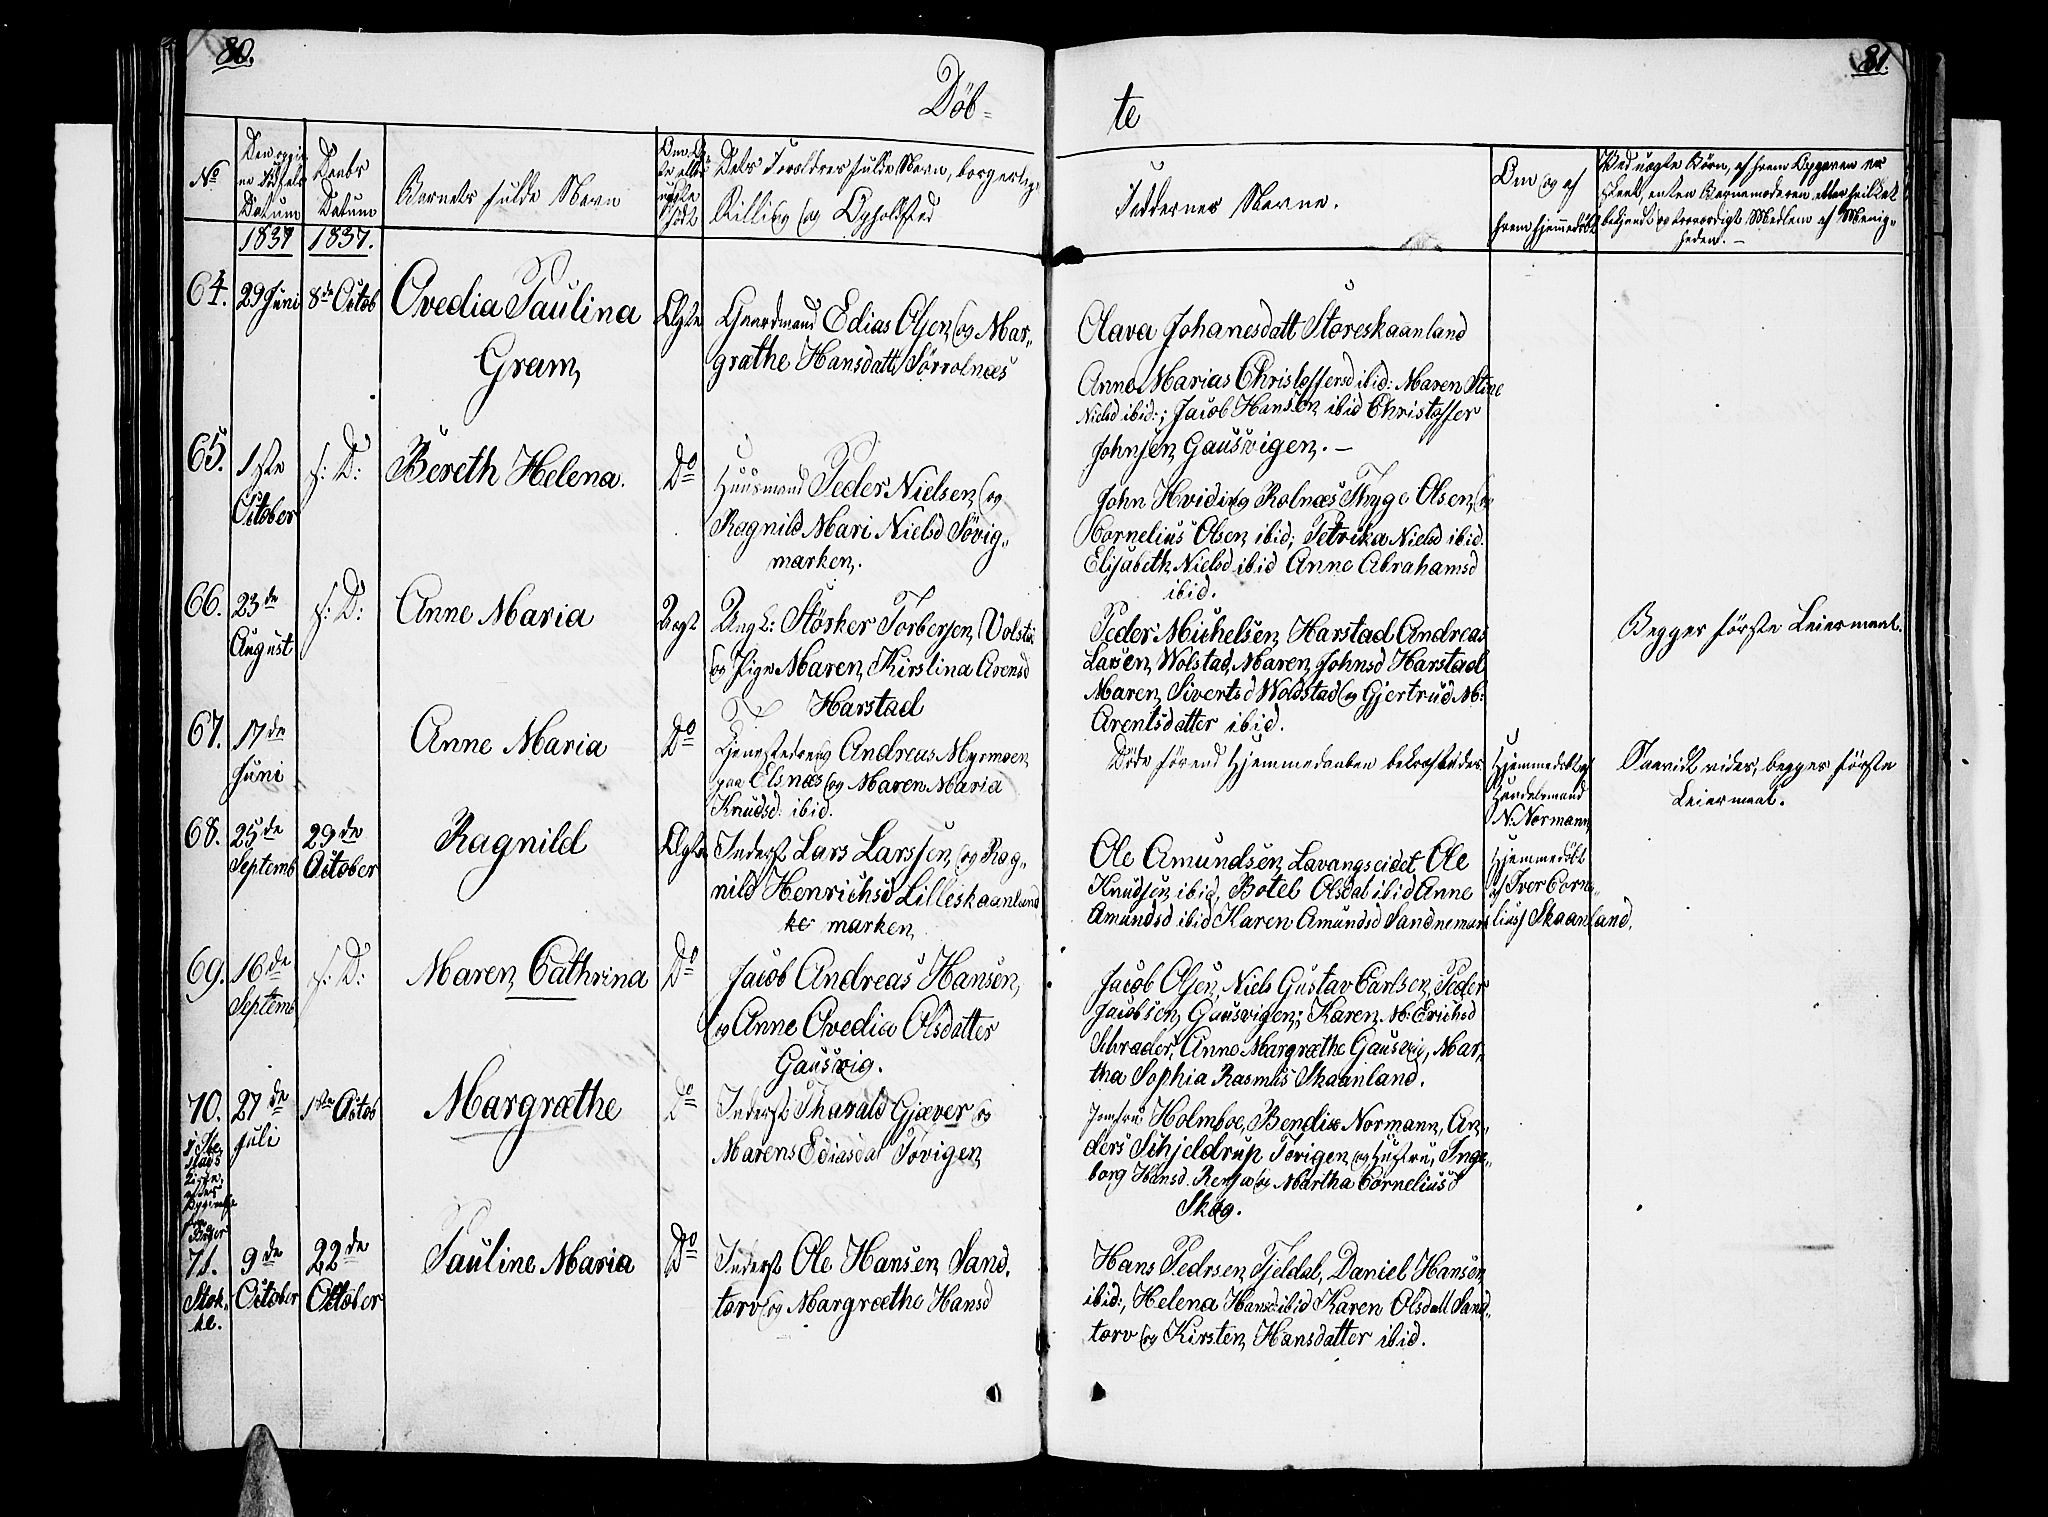 80.
81.
Døb=
te
No
Den opgivne Fødsels Datum
Daabs Datum
Barnets fulde Navn
Om Ægte eller uægte født
Dets Forældres fulde Navn, borgerlige
Stilling og Opholdsted
Faddernes Navne.
Om og af
hvem hjemmedøbt
Ved uægte Børn, af hvem Opgaven er
skeet, enten Barnemoderen eller heilket
bekjendt og troværdigt Medlem af Menig=
heden.—
1837
1837.
64.
29 Juni
8de Octob
Ovedia Paulina
Gram,
Ægte
Gaardmand Edias Olsen, og Mar=
grathe Hansdatt Sørrolnæs
Olava Johanesdatt Storeskaanland
Anne Marias Christoffersd ibid: Maren Stine
Nielsd ibid:; Jacob Hansen ibid Christoffer
Johnsen Gausvigen.—
65.
1ste
October
s: D:
Bereth Helena.
Do
Huusmand Peder Nielsen, og
Ragnild Mari Nielsd Søvig=
marken.
John Hviding Rolnæs Thyge Olsen, og
Cornelius Olsen ibid; Petrika Nielsd ibid
Elisabeth Nielsd ibid Anne Abrahamsd
ibid.
66.
23de
August
s: D:
Anne Maria
Uægt
Ung K: Størker Torbersen, Volsta
og Pige Maren, Kirstina Arensd
Harstad
Peder Michelsen, Harstad Andreas
Larsen, Wolstad, Maren, Johnsd Harstad
Maren, Sivertsd Woldstad og Gjertrud M:
Arentsdatter ibid.
Begges første Leiermaal.
67.
17de
Juni
Anne Maria
Do
Tjenestedreng Andreas Myrmoen
paa Elsnæs og Maren Maria
Knudsd: ibid.
Døde førend Hjemmedaaben bekræftedes
Hjemmedøbt af
Handelsmand
N: Normann,
Saavidt vides, begges første
Leiermaal.
68.
25de
Septemb
29de
October
Ragnild
Ægte
Inderst Lars Larssen, og Rag=
nild Henrichsd Lilleskaanland
marken,
Ole Amundsen, Lavangseidet, Ole
Knudsen, ibid, Botel Olsdat ibid Anne
Amundsd ibid Karen Amundsd Sandnemark
Hjemmedøbt
af Iver Corne=
liuss Skaanland.
69.
16de
Septemb
s: D:
Maren, Cathrina
Do
Jacob Andreas Hansen,
og Anne Ovedia Olsdatter
Gausvig.
Jacob Olsen, Niels Gustav Carlsen, Peder
Jacobsen, Gausvigen; Karen, M: Erichsd
Schrader, Anne Margræthe Gausvig, Mar=
tha Sophia Rasmus Skaanland.
70.
27de
Juli
1ste Octob
Margræthe
Do
Inderst Tharald Gjæver og
Marens Ediasdat Tøvigen
Jomfru Holmboe, Bendix Normann, An=
ders Schjeldrup Tøvigen, og Hustru, Inge=
borg Hansd. Rensa og Martha Corneliusd
Skog.
71.
Stok=
ke.
9de
October
22de
October
Pauline Maria
Do
Inderst Ole Hansen, Sand,
torv og Margræthe Hansd
Hans Pedrsen, Fjeldal, Daniel Hansen
ibid:, Helena Hansd ibid Karen Olsdatt Sand=
torv og Kirsten, Hansdatter ibid.